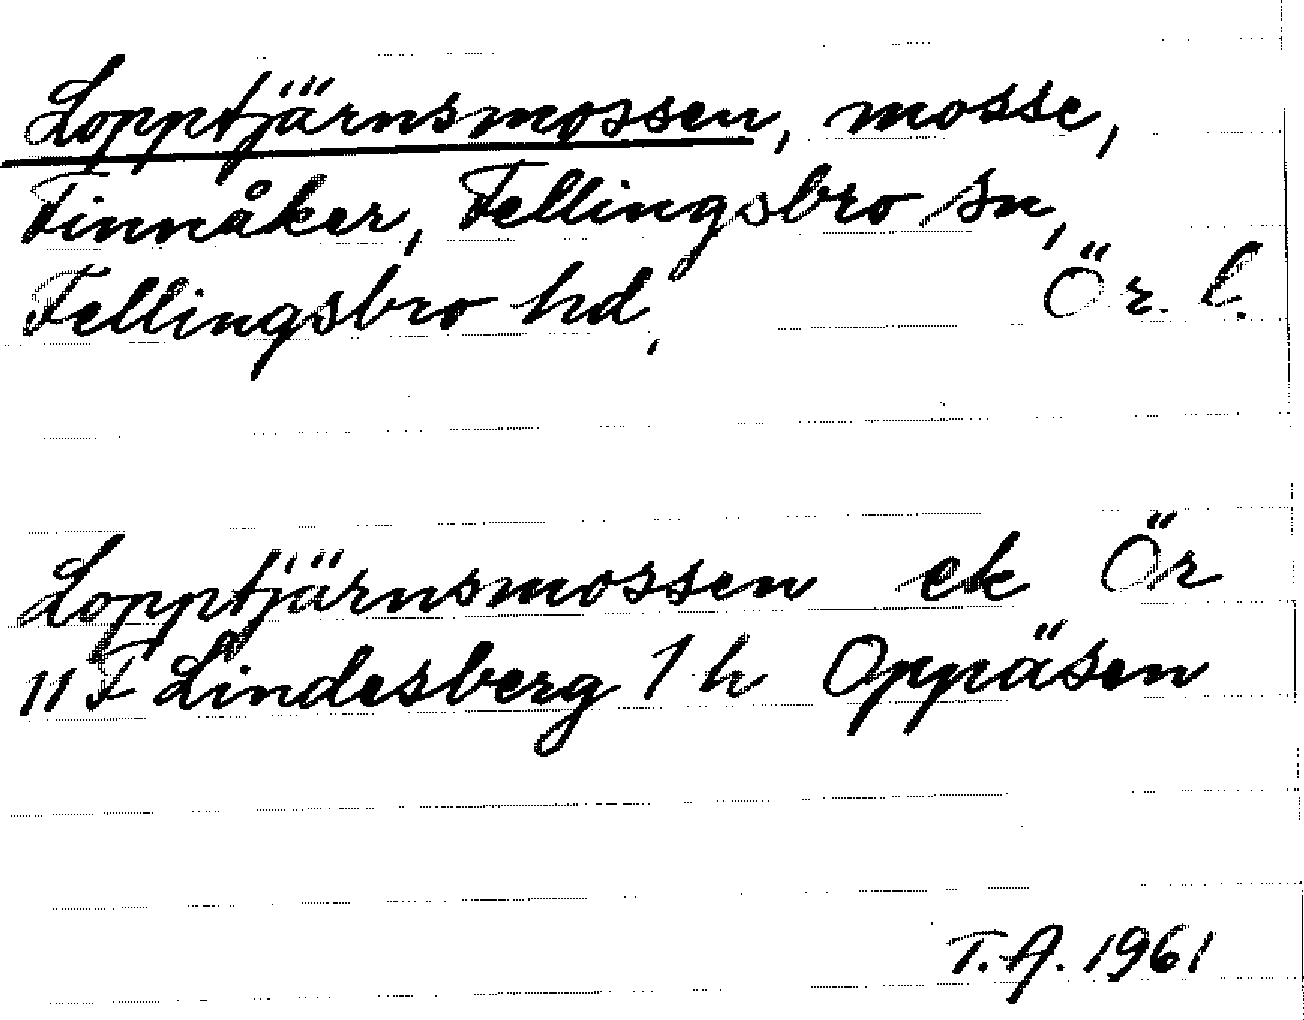 Lopptjärnsmossen, mosse,
Finnåker, Fellingsbro sn,
Fellingsbro hd, Ör. l.
Lopptjärnsmossen ek Ör
11 F Lindesberg 1 h Oppåsen
T.A. 1961